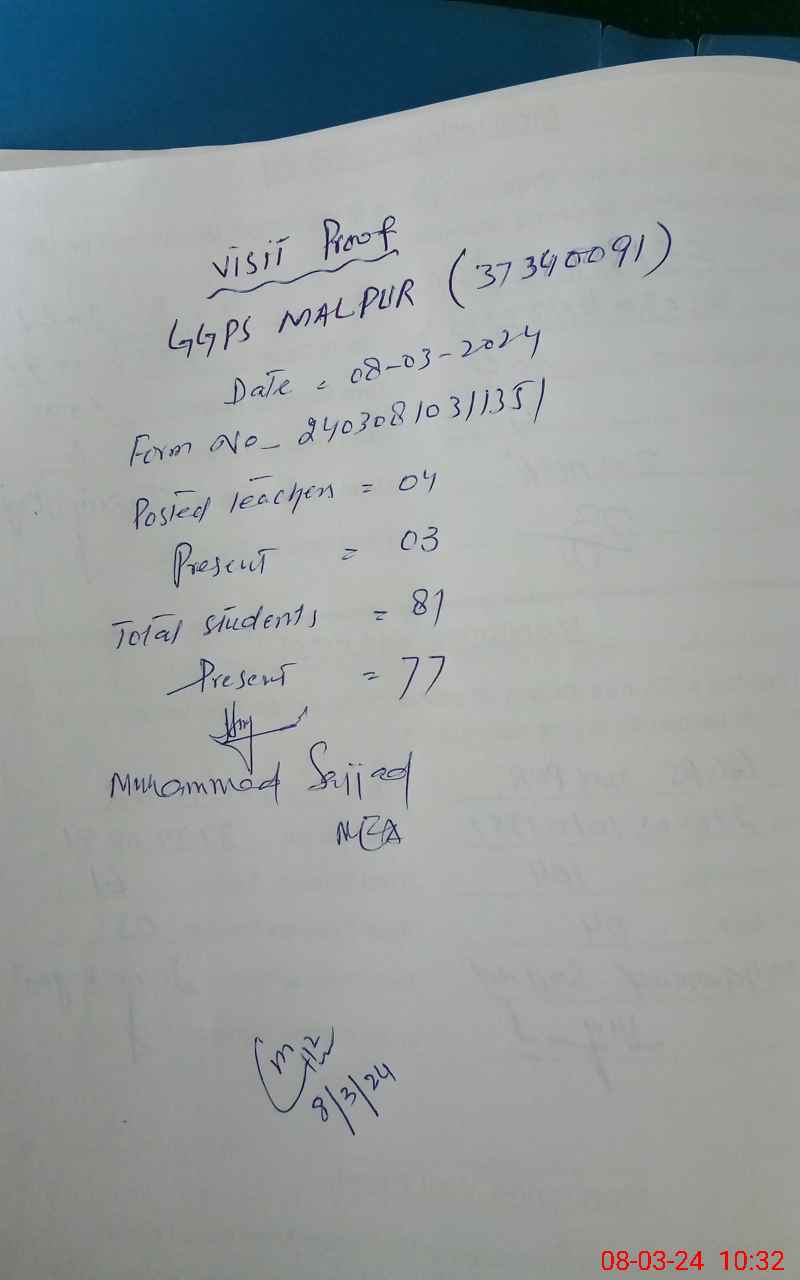 Visit Proof
GGPS MALPUR (37340091)
Date = 08-03-2024
Form No_ 24030810311351
Posted teachers = 04
Present = 03
Total students = 81
Present = 77
Muhammad Sajjad
MEA
8/3/24
08-03-24 10:32